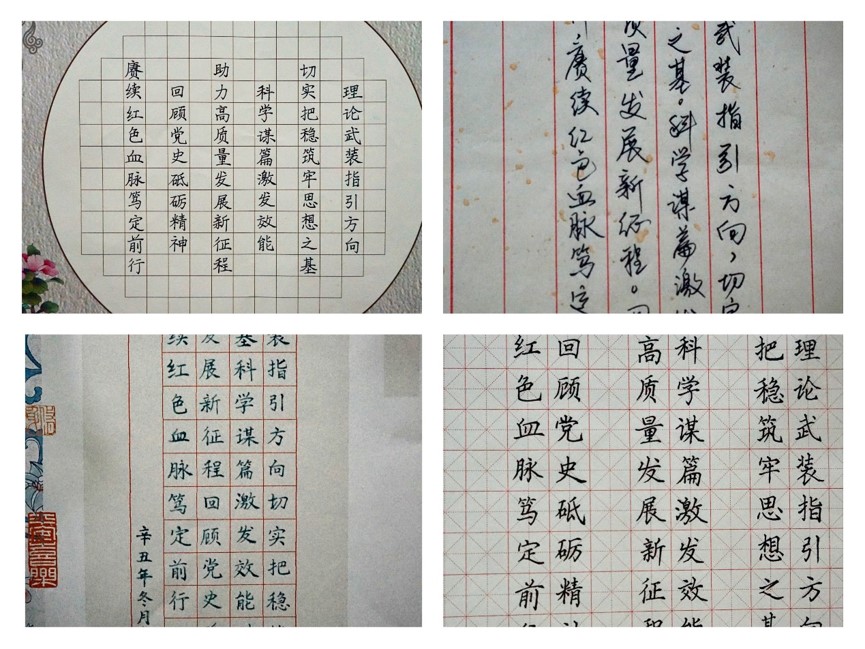 理论武装指引方向
切实把稳筑牢思想之基
科学谋篇激发效能
助力高质量发展新征程
回顾党史砥砺精神
赓续红色血脉笃定前行
武装指引方向，切实
之基。科学谋篇激发
质量发展新征程。回
赓续红色血脉笃定
装指引方向切实把稳
基科学谋篇激发效能
发展新征程回顾党史
续红色血脉笃定前行
辛丑年冬月
理论武装指引方向
把稳筑牢思想之基
科学谋篇激发效能
高质量发展新征程
回顾党史砥砺精神
红色血脉笃定前行